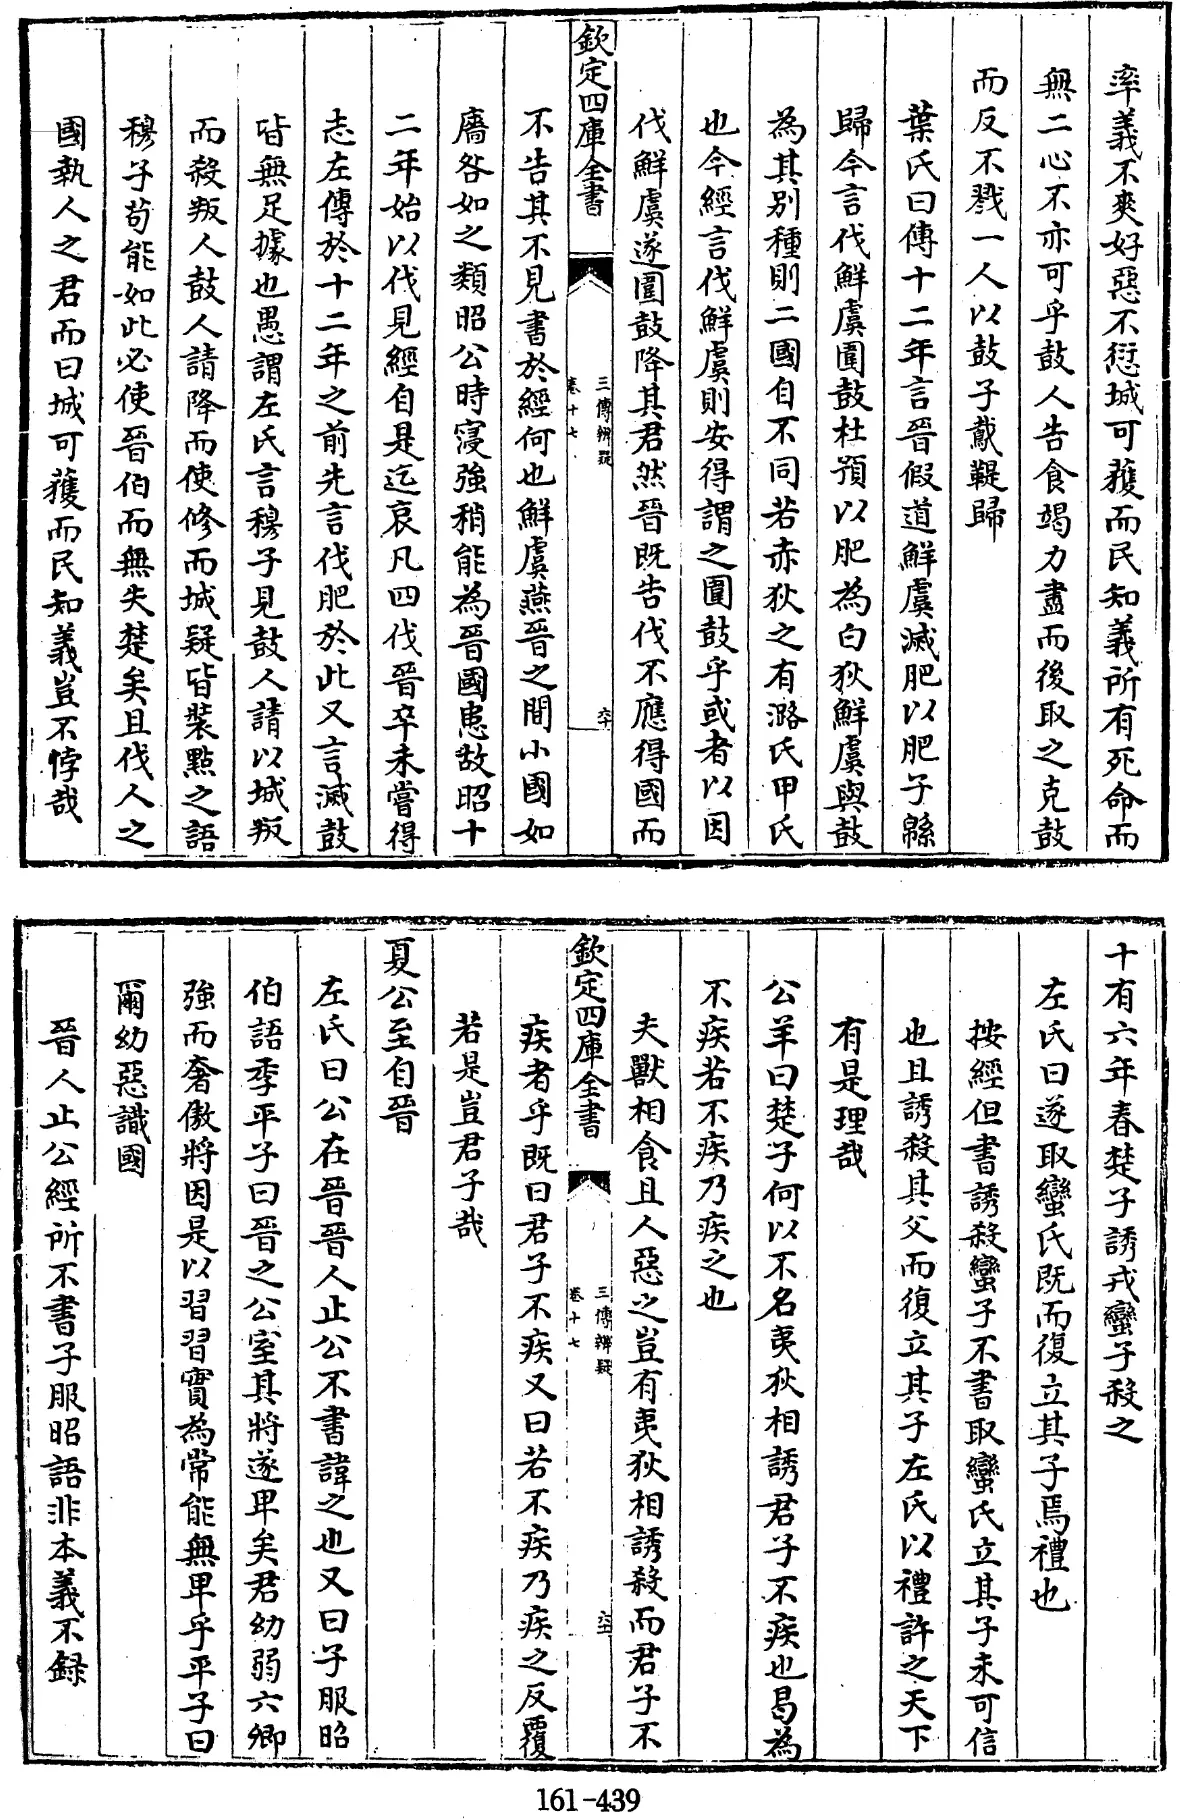 率義不爽好惡不愆城可獲而民知義所有死命而
無二心不亦可乎鼓人告食竭力盡而後取之克鼓
而反不戮一人以鼓子䳒鞮歸
葉氏曰傳十二年言晉假道鮮虞滅肥以肥子緜
歸今言伐鮮虞圍鼓杜預以肥為白狄鮮虞與鼓
為其别種則二國自不同若赤狄之有潞氏甲氏
也今經言伐鮮虞則安得謂之圍鼓乎或者以因
伐鮮虞遂圍鼓降其君然晉既告伐不應得國而
欽定四庫全書
三傳辨疑
卷十七
六十
不告其不見書於經何也鮮虞燕晉之間小國如
廧咎如之類昭公時寖強稍能為晉國患故昭十
二年始以伐見經自是迄哀凡四伐晉卒未嘗得
志左傳於十二年之前先言伐肥於此又言滅鼓
皆無足據也愚謂左氏言穆子見鼓人請以城叛
而殺叛人鼓人請降而使修而城疑皆裝點之語
穆子茍能如此必使晉伯而無失楚矣且伐人之
國執人之君而曰城可獲而民知義豈不悖哉
十有六年春楚子誘戎蠻子殺之
左氏曰遂取蠻氏既而復立其子焉禮也
按經但書誘殺蠻子不書取蠻氏立其子未可信
也且誘殺其父而復立其子左氏以禮許之天下
有是理哉
公羊曰楚子何以不名夷狄相誘君子不疾也曷為
不疾若不疾乃疾之也
夫獸相食且人惡之豈有夷狄相誘殺而君子不
欽定四庫全書
三傳辨疑
卷十七
疾者乎既曰君子不疾又曰若不疾乃疾之反覆
若是豈君子哉
夏公至自晉
左氏曰公在晉晉人止公不書諱之也又曰子服昭
伯語季平子曰晉之公室其將遂卑矣君幼弱六卿
強而奢傲將因是以習習實為常能無卑乎平子曰
爾幼惡識國
晉人止公經所不書子服昭語非本義不錄
161-439